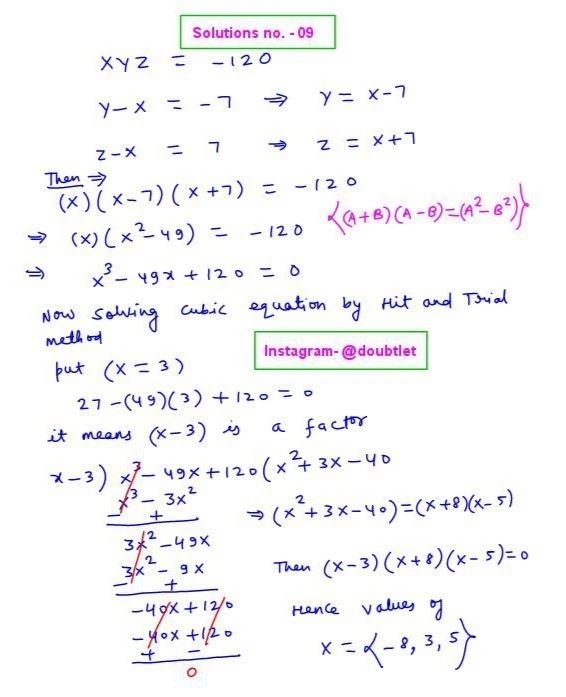 Solutions no. - 09
xyz = -120
y-x = -7 ⇒ y = x-7
z-x = 7 ⇒ z = x+7
Then ⇒
(x)(x-7)(x+7) = -120
{(A+B)(A-B)=(A²-B²)}
⇒ (x)(x²-49) = -120
⇒ x³-49x+120=0
Now solving cubic equation by Hit and Trial
method
put (x=3)
Instagram- @doubtlet
27-(49)(3)+120=0
it means (x-3) is a factor
x-3) x³-49x+120(x²+3x-40
x³-3x²
- +
3x²-49x
3x²-9x
- +
-40x+120
-40x+120
+ -
0
⇒ (x²+3x-40)=(x+8)(x-5)
Then (x-3)(x+8)(x-5)=0
Hence values of
x = {-8, 3, 5}